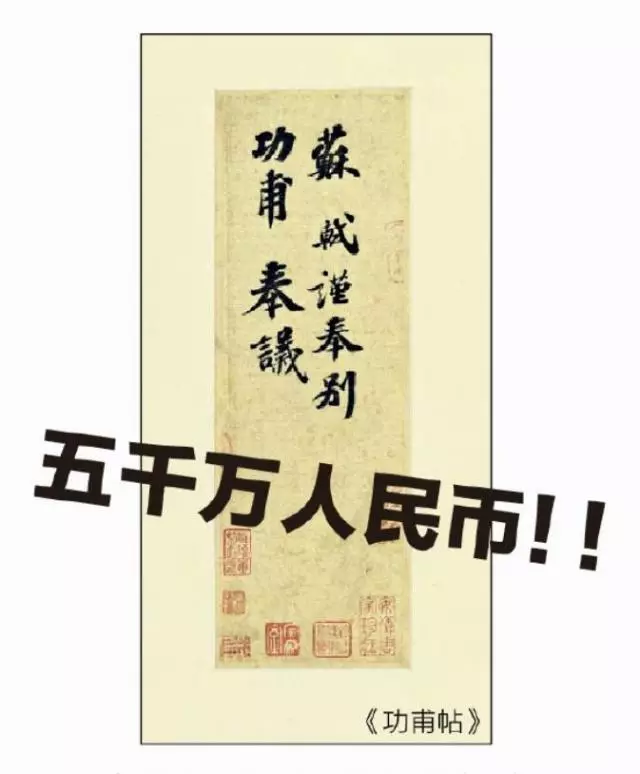 蘇軾謹奉别
功甫奉議
五千万人民币！！
《功甫帖》